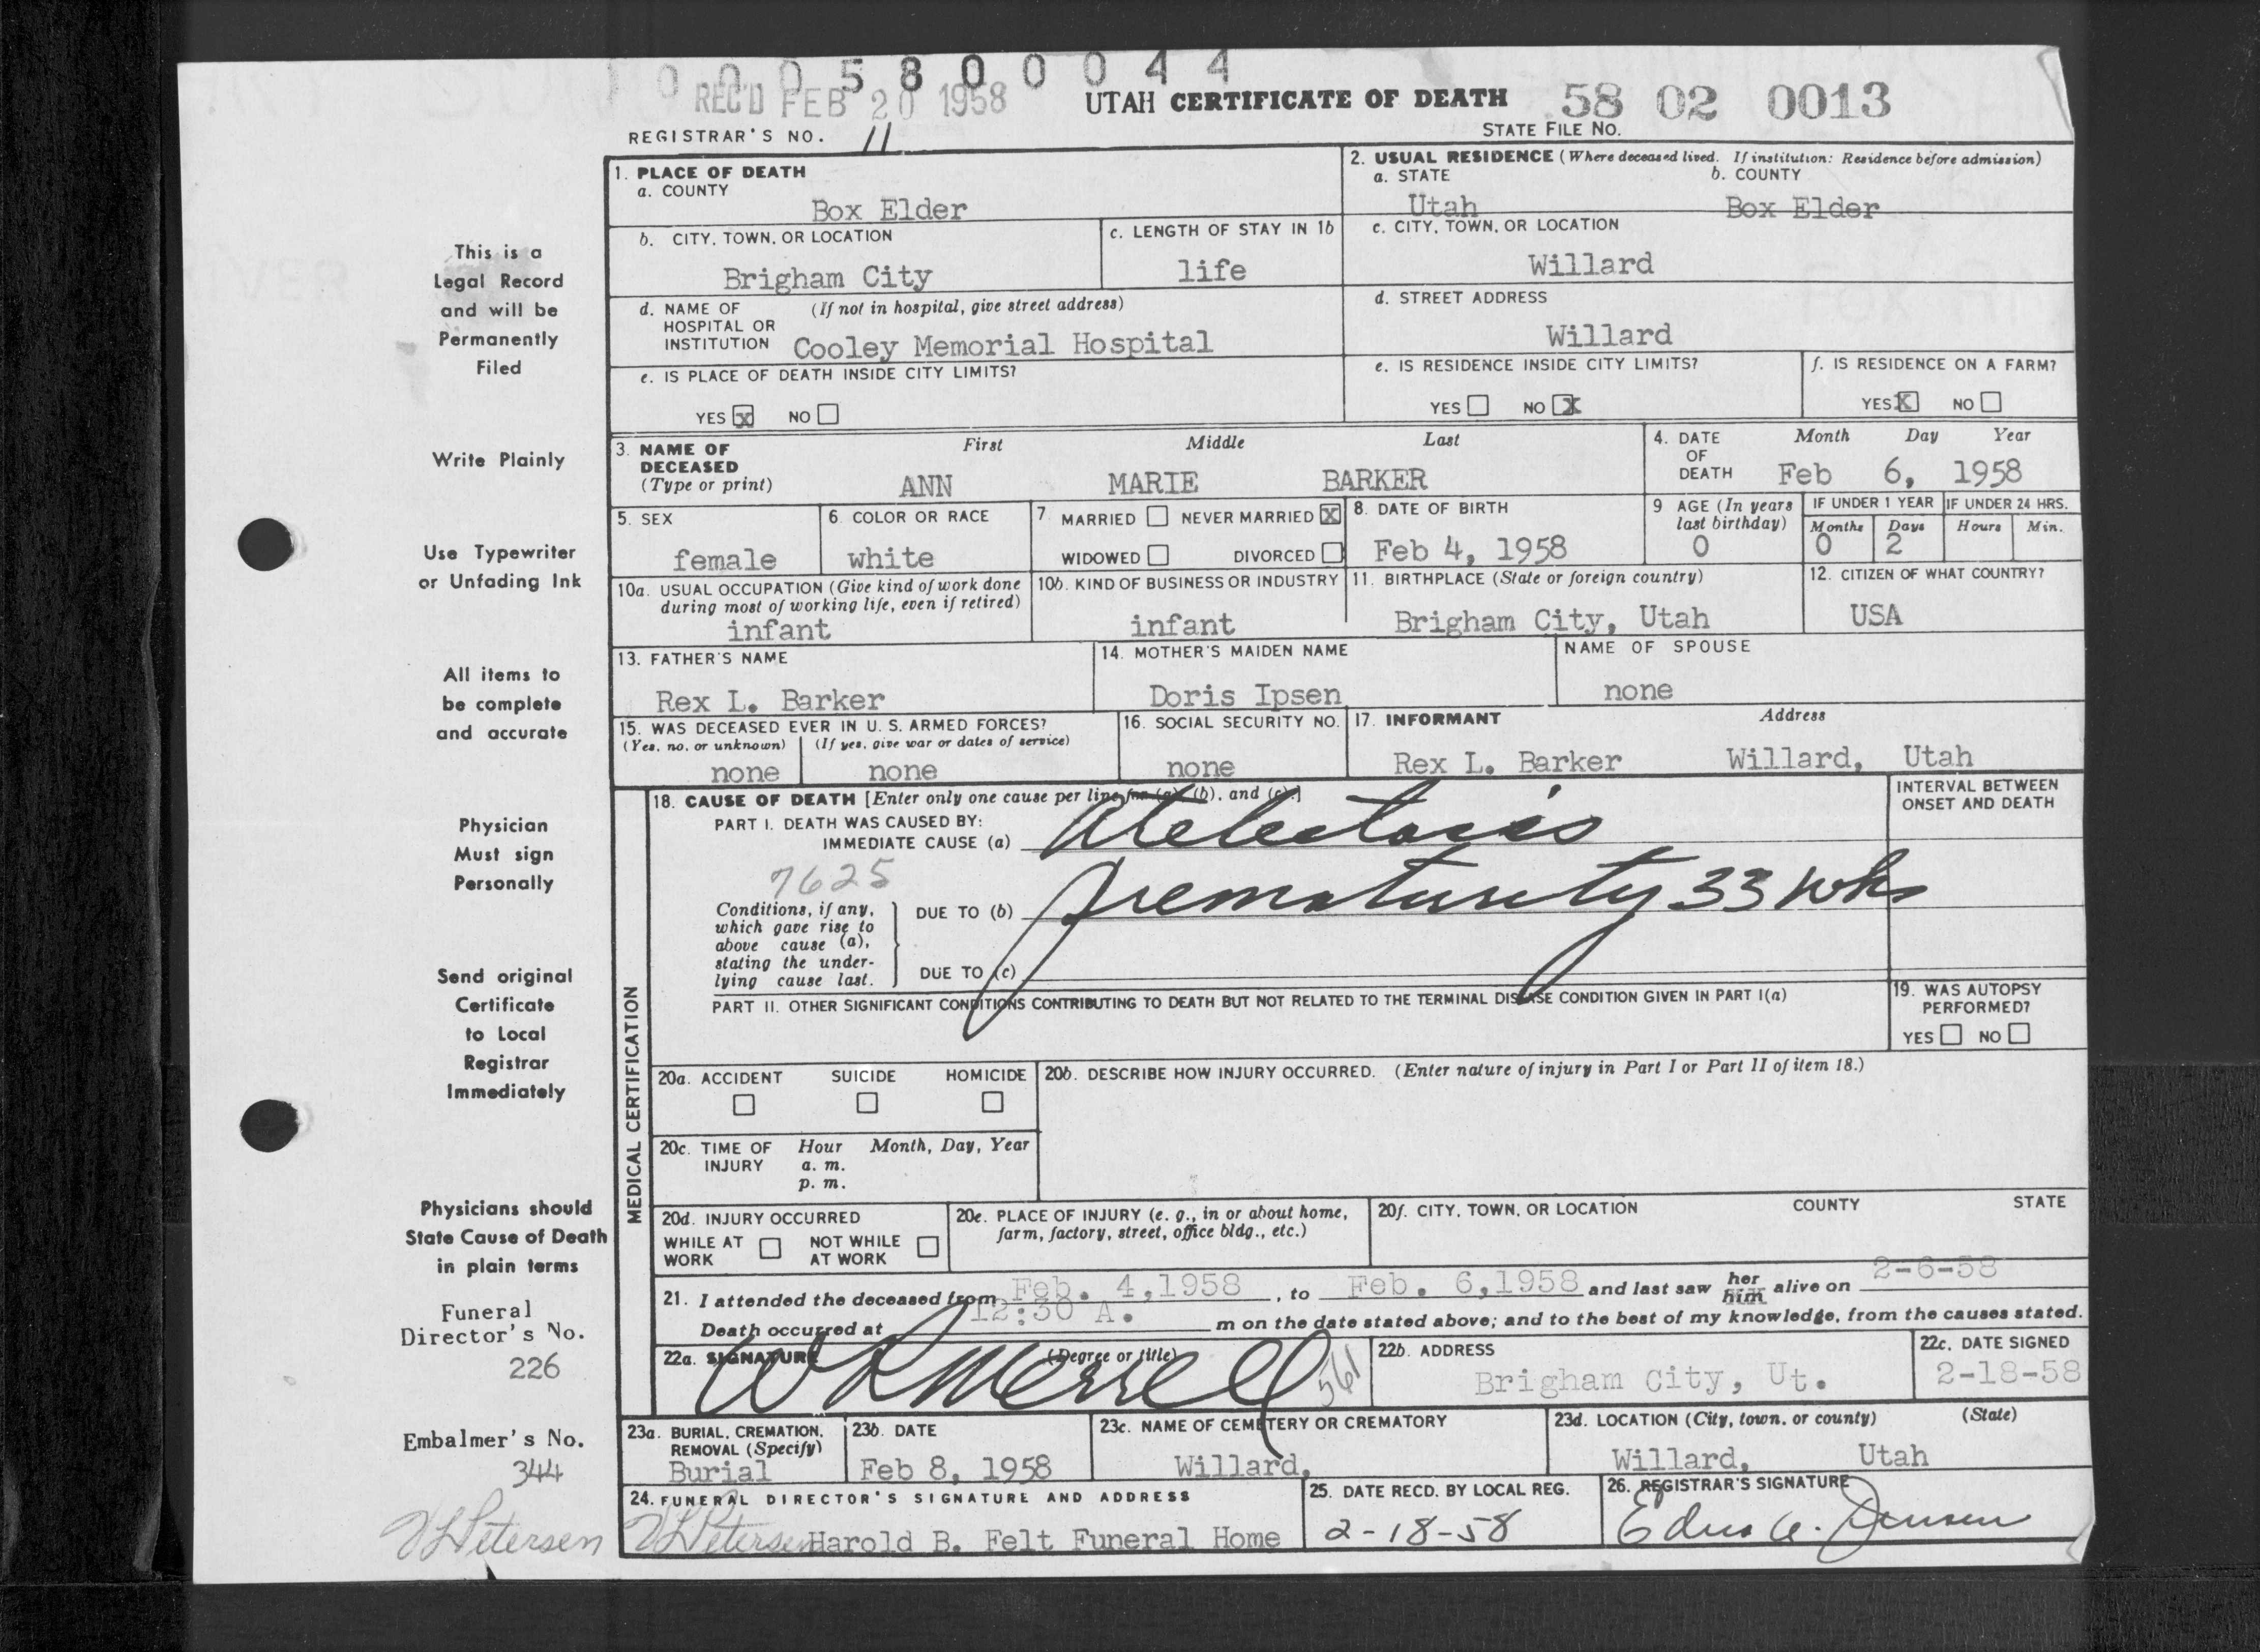 0 0 0 5 8 0 0 0 4 4
REC'D FEB 20 1958 UTAH CERTIFICATE OF DEATH 58 02 0013
REGISTRAR'S NO. 11 STATE FILE NO.
1. PLACE OF DEATH
a. COUNTY
Box Elder
2. USUAL RESIDENCE (Where deceased lived. If institution: Residence before admission)
a. STATE b. COUNTY
Utah Box Elder
b. CITY, TOWN, OR LOCATION
Brigham City
c. LENGTH OF STAY IN 1b
life
c. CITY, TOWN, OR LOCATION
Willard
d. NAME OF (If not in hospital, give street address)
HOSPITAL OR
INSTITUTION Cooley Memorial Hospital
d. STREET ADDRESS
Willard
e. IS PLACE OF DEATH INSIDE CITY LIMITS?
YES X NO
e. IS RESIDENCE INSIDE CITY LIMITS?
YES NO X
f. IS RESIDENCE ON A FARM?
YES X NO
3. NAME OF First Middle Last
DECEASED
(Type or print) ANN MARIE BARKER
4. DATE Month Day Year
OF
DEATH Feb 6, 1958
5. SEX
female
6. COLOR OR RACE
white
7. MARRIED NEVER MARRIED X
WIDOWED DIVORCED
8. DATE OF BIRTH
Feb 4, 1958
9 AGE (In years
last birthday)
0
IF UNDER 1 YEAR
Months Days
0 2
IF UNDER 24 HRS.
Hours Min.
10a. USUAL OCCUPATION (Give kind of work done
during most of working life, even if retired)
infant
10b. KIND OF BUSINESS OR INDUSTRY
infant
11. BIRTHPLACE (State or foreign country)
Brigham City, Utah
12. CITIZEN OF WHAT COUNTRY?
USA
13. FATHER'S NAME
Rex L. Barker
14. MOTHER'S MAIDEN NAME
Doris Ipsen
NAME OF SPOUSE
none
15. WAS DECEASED EVER IN U. S. ARMED FORCES?
(Yes, no, or unknown) (If yes, give war or dates of service)
none none
16. SOCIAL SECURITY NO.
none
17. INFORMANT Address
Rex L. Barker Willard, Utah
MEDICAL CERTIFICATION
18. CAUSE OF DEATH [Enter only one cause per line for (a), (b), and (c).]
INTERVAL BETWEEN
ONSET AND DEATH
PART I. DEATH WAS CAUSED BY:
IMMEDIATE CAUSE (a) Atelectasis
7625
Conditions, if any,
which gave rise to
above cause (a),
stating the under-
lying cause last.
DUE TO (b) prematurity 33 wks
DUE TO (c)
PART II. OTHER SIGNIFICANT CONDITIONS CONTRIBUTING TO DEATH BUT NOT RELATED TO THE TERMINAL DISEASE CONDITION GIVEN IN PART I(a)
19. WAS AUTOPSY
PERFORMED?
YES NO
20a. ACCIDENT SUICIDE HOMICIDE
20b. DESCRIBE HOW INJURY OCCURRED. (Enter nature of injury in Part I or Part II of item 18.)
20c. TIME OF Hour Month, Day, Year
INJURY a. m.
p. m.
20d. INJURY OCCURRED
WHILE AT NOT WHILE
WORK AT WORK
20e. PLACE OF INJURY (e. g., in or about home,
farm, factory, street, office bldg., etc.)
20f. CITY, TOWN, OR LOCATION COUNTY STATE
21. I attended the deceased from Feb. 4,1958, to Feb. 6,1958 and last saw her him alive on 2-6-58
Death occurred at 12:30 A. m on the date stated above; and to the best of my knowledge, from the causes stated.
22a. SIGNATURE (Degree or title)
W R Merrell 561
22b. ADDRESS
Brigham City, Ut.
22c. DATE SIGNED
2-18-58
23a. BURIAL, CREMATION,
REMOVAL (Specify)
Burial
23b. DATE
Feb 8, 1958
23c. NAME OF CEMETERY OR CREMATORY
Willard,
23d. LOCATION (City, town, or county) (State)
Willard, Utah
24. FUNERAL DIRECTOR'S SIGNATURE AND ADDRESS
V L Petersen Harold B. Felt Funeral Home
25. DATE RECD. BY LOCAL REG.
2-18-58
26. REGISTRAR'S SIGNATURE
Edna A. Jensen
This is a
Legal Record
and will be
Permanently
Filed
Write Plainly
Use Typewriter
or Unfading Ink
All items to
be complete
and accurate
Physician
Must sign
Personally
Send original
Certificate
to Local
Registrar
Immediately
Physicians should
State Cause of Death
in plain terms
Funeral
Director's No.
226
Embalmer's No.
344
V L Petersen